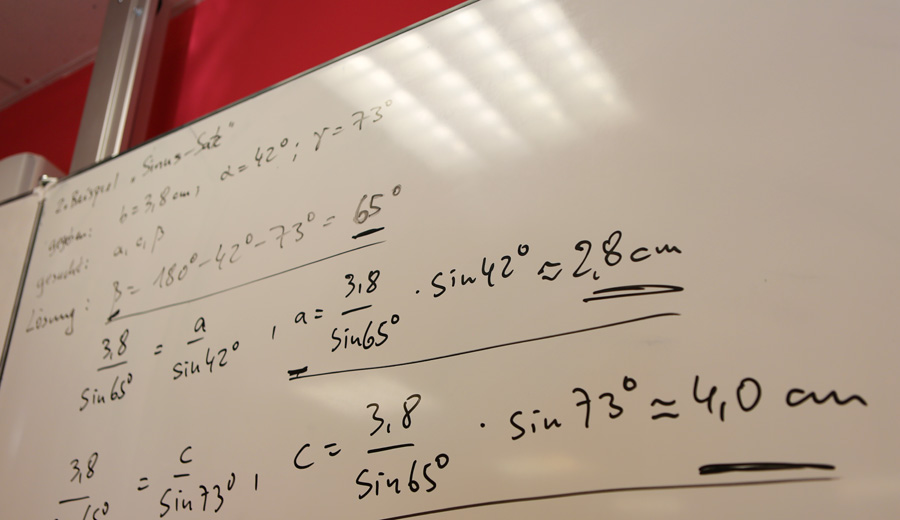 2. Beispiel „Sinus-Satz"
gegeben: b = 3,8 cm; α = 42°; γ = 73°
gesucht: a, c, β
Lösung: β = 180° - 42° - 73° = 65°
3,8 / sin 65° = a / sin 42° , a = 3,8 / sin 65° · sin 42° ≈ 2,8 cm
3,8 / sin 65° = c / sin 73° , c = 3,8 / sin 65° · sin 73° ≈ 4,0 cm